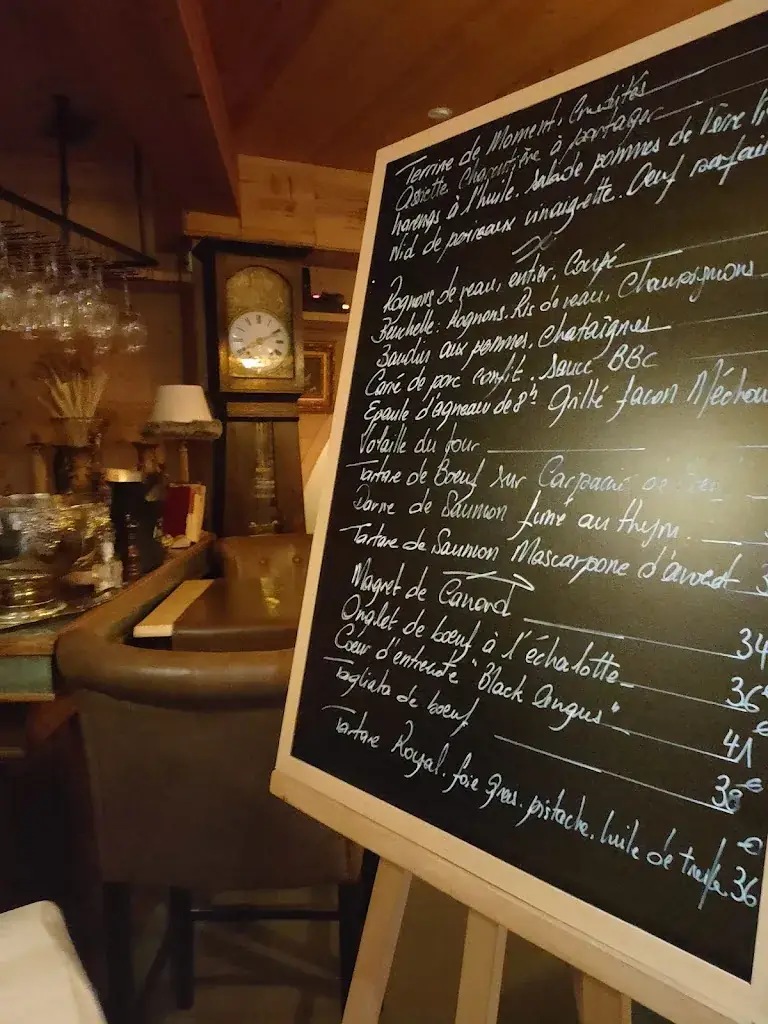 Terrine du Moment, Crudités
Assiette Charcutière à partager
harengs à l'huile. Salade pommes de Terre
Nid de poireaux vinaigrette. Oeuf parfait
Rognons de veau, entier, Coupé
Beuchelle: Rognons. Ris de veau, Champignons
Boudin aux pommes, chataignes
Carré de porc confit. Sauce BBC
Epaule d'agneau de 8h Grillé façon Méchou
Volaille du Jour
Tartare de Boeuf sur Carpaccio de
Darne de Saumon fumé au thym
Tartare de Saumon Mascarpone d'avocat 3
Magret de Canard 34
Onglet de boeuf à l'échalotte 36€
Coeur d'entrecôte "Black Angus" 41€
Tagliata de boeuf 38€
Tartare Royal. foie Gras. pistache. huile de truffe 36€